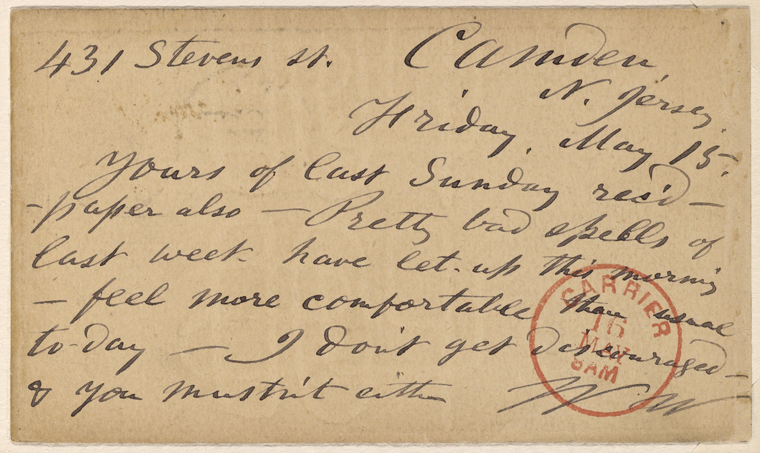 431 Stevens st. Camden
N. Jersey,
Friday, May 15.
Yours of last Sunday rec'd –
– paper also – Pretty bad spells of
last week have let-up this morning
– feel more comfortable than usual
to-day — I don't get discouraged –
& you mustn't either
W W
CARRIER
16
MAY
8AM